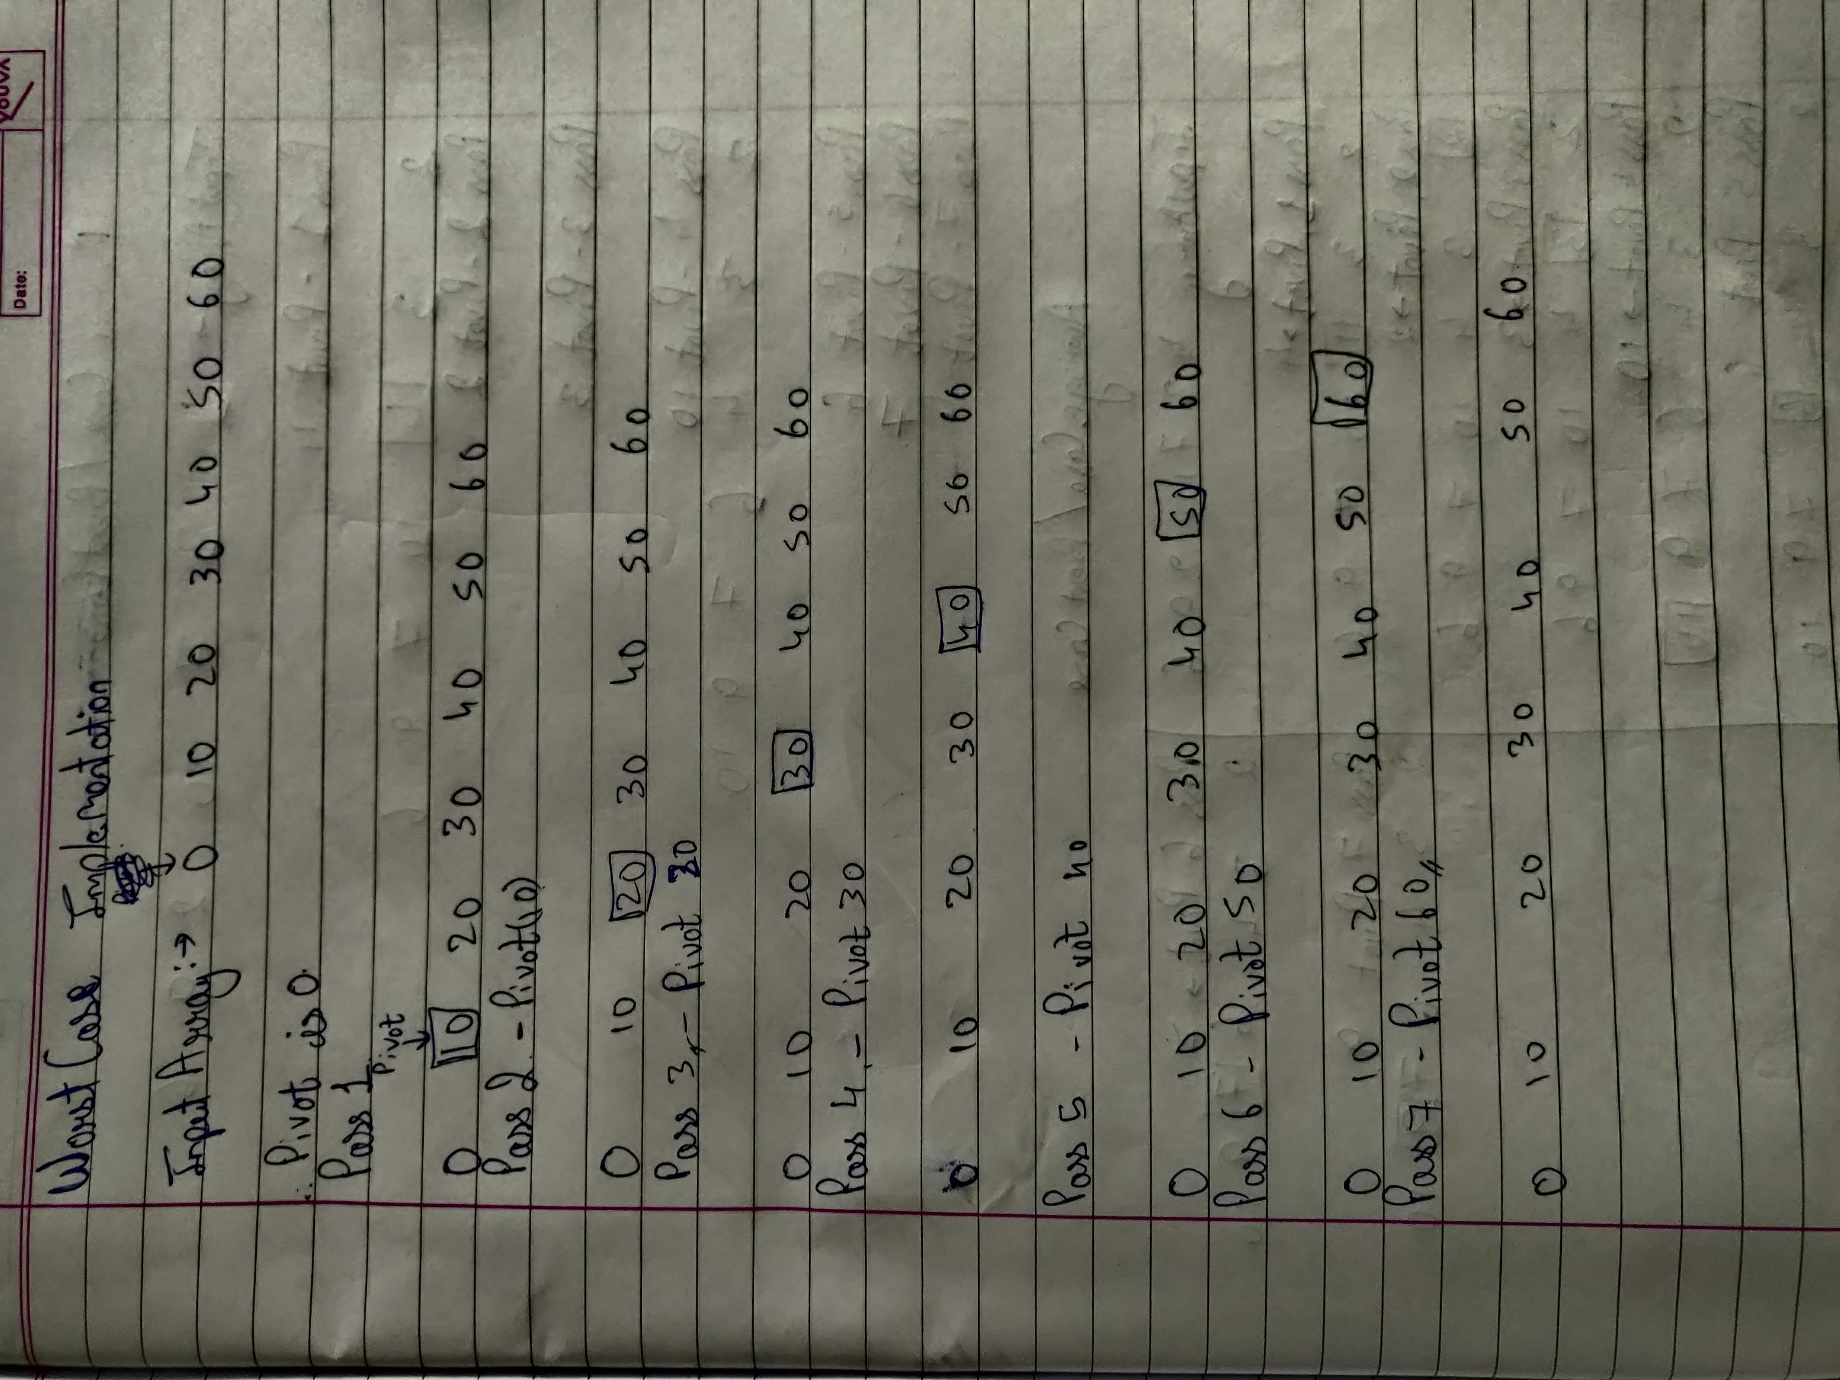 YOUVA
Date:
Worst Case Implementation
Input Array :→ 0 10 20 30 40 50 60
∴ Pivot is 0.
Pass 1
Pivot
0 10 20 30 40 50 60
Pass 2 - Pivot(10)
0 10 20 30 40 50 60
Pass 3 - Pivot 20
0 10 20 30 40 50 60
Pass 4 - Pivot 30
0 10 20 30 40 50 60
Pass 5 - Pivot 40
0 10 20 30 40 50 60
Pass 6 - Pivot 50
0 10 20 30 40 50 60
Pass 7 - Pivot 60,,
0 10 20 30 40 50 60